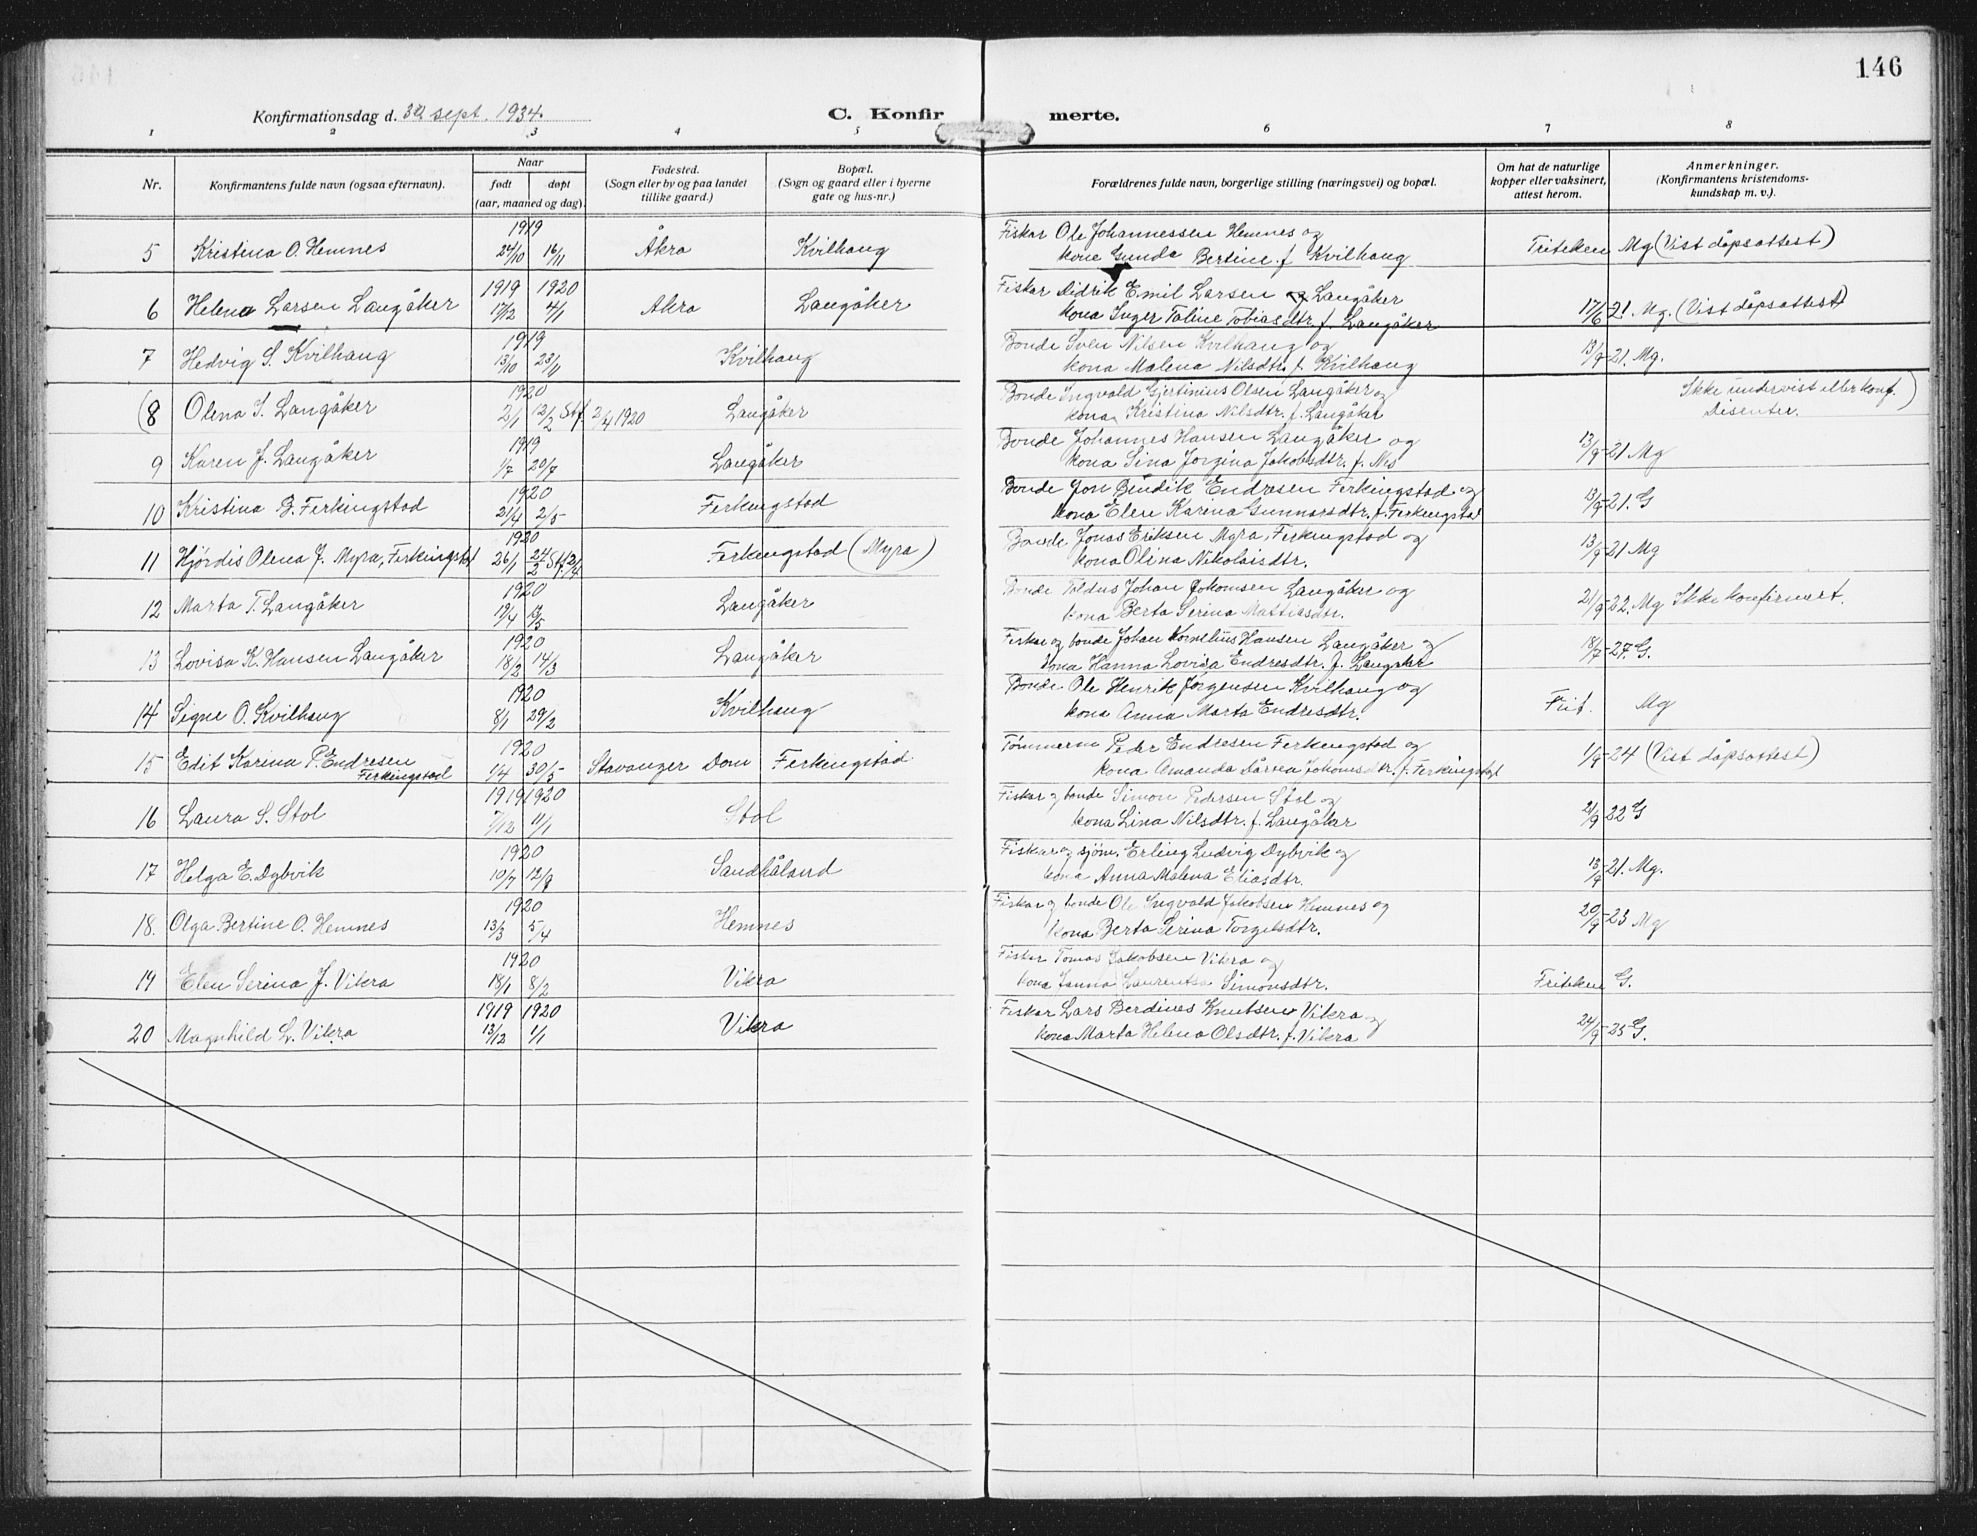 146
Konfirmationsdag d. 30 sept. 1934. C. Konfirmerte.
1 2 3 4 5 6 7 8
Nr. Konfirmantens fulde navn (ogsaa efternavn). Naar født døpt (aar, maaned og dag). Fødested. (Sogn eller by og paa landet tillike gaard.) Bopæl. (Sogn og gaard eller i byerne gate og hus-nr.) Forældrenes fulde navn, borgerlige stilling (næringsvei) og bopæl. Om hat de naturlige kopper eller vaksinert, attest herom. Anmerkninger. (Konfirmantens kristendoms-kundskap m. v.).
1919 Fiskar Ole Johannessen Hemnes og
5 Kristina O. Hemnes 24/10 16/11 Åkra Kvilhaug kone Gunda Bertine f Kvilhaug Friteken Mg (Vist dåpsattest)
1919 1920 Fiskar Didrik Emil Larsen Langåker
6 Helena Larsen Langåker 17/12 4/1 Åkra Langåker kona Inger Taline Tobiasdtr. f. Langåker 17/6 21. Mg. (Vist dåpsattest)
1919 Bonde Sven Nilsen Kvilhaug og
7 Hedvig S. Kvilhaug 13/10 23/11 Kvilhaug kona Malena Nilsdtr. f. Kvilhaug 13/9-21. Mg.
1920 Bonde Ingvald Gjertinius Olsen Langåker og Ikke undervist eller konf.)
(8 Olena I. Langåker 2/1 12/2 Stf. 2/4 1920 Langåker kona Kristina Nilsdtr. f. Langåker Disenter.
1919 Bonde Johannes Hansen Langåker og
9 Karen J. Langåker 1/7 20/7 Langåker kona Sina Jorgina Jakobsdtr. f. Nes 13/9-21 Mg
1920 Bonde Jon Bendik Endresen Ferkingstad og
10 Kristina B. Ferkingstad 21/4 2/5 Ferkingstad kona Elen Karena Gunnarsdtr. f. Ferkingstad 13/9-21. G
1920 Bonde Jonas Eriksen Myra, Ferkingstad og
11 Hjørdis Olena J. Myra, Ferkingstad 26/1 24/2 Stf. 2/4 Ferkingstad (Myra) kona Olina Nikolaisdtr. 13/9-21 Mg
1920 Bonde Johan Jokomsen Langåker og
12 Marta T. Langåker 19/4 /5 Langåker kona Berta Serina Mattiasdtr. 21/9-22. Mg Ikke konfirmert.
1920 Fiskar og bonde Johan Kornelius Hansen Langåker og
13 Lovisa K. Hansen Langåker 18/2 14/3 Langåker kona Hanna Lovisa Endresdtr. f. Langåker 18/7-27. G.
1920 Bonde Ole Henrik Jørgensen Kvilhaug og
14 Signe O. Kvilhaug 8/1 29/2 Kvilhaug kona Anna Marta Endresdtr. Frit. Mg
1920 Tømmerm Peder Endresen Ferkingstad og
15 Edit Karina P. Endresen Ferkingstad 1/4 30/5 Stavanger Dom Ferkingstad kona Amanda Jokomsdtr. f. Ferkingstad 1/9-24 (Vist dåpsattest)
1919 1920 Fiskar og bonde Simon Pedersen Stol og
16 Laura S. Stol 7/12 11/1 Stol kona Lina Nilsdtr. f. Langåker 21/9 22 G
1920 Fiskar og sjøm. Erling Ludvig Dybvik og
17 Helga E. Dybvik 10/7 12/9 Sandhåland kona Anna Malena Eliasdtr. 13/9-21. Mg.
1920 Fiskar og bonde Ole Ingvald Jakobsen Hemnes og
18. Olga Bertine O. Hemnes 13/3 5/4 Hemnes kona Berta Serina Torgilsdtr. 20/9-23 Mg
1920 Fiskar Tomas Jakobsen Vikra og
19 Elen Serina J. Vikra 18/1 8/2 Vikra kona Janna Laurentsa Simonsdtr. Friteken G.
1919 1920 Fiskar Lars Berdines Knutsen Vikra og
20 Magnhild L. Vikra 13/12 1/1 Vikra kona Marta Helena Olsdtr. f. Vikra 24/9-25 G.